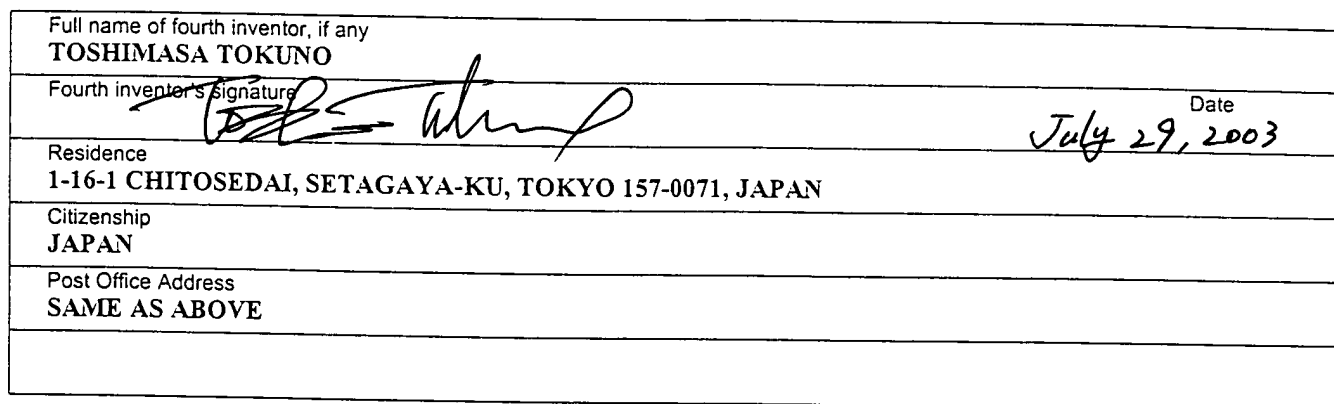 Full name of fourth inventor, if any
TOSHIMASA TOKUNO
Fourth inventor's signature
Date
July 29, 2003
Residence
1-16-1 CHITOSEDAI, SETAGAYA-KU, TOKYO 157-0071, JAPAN
Citizenship
JAPAN
Post Office Address
SAME AS ABOVE